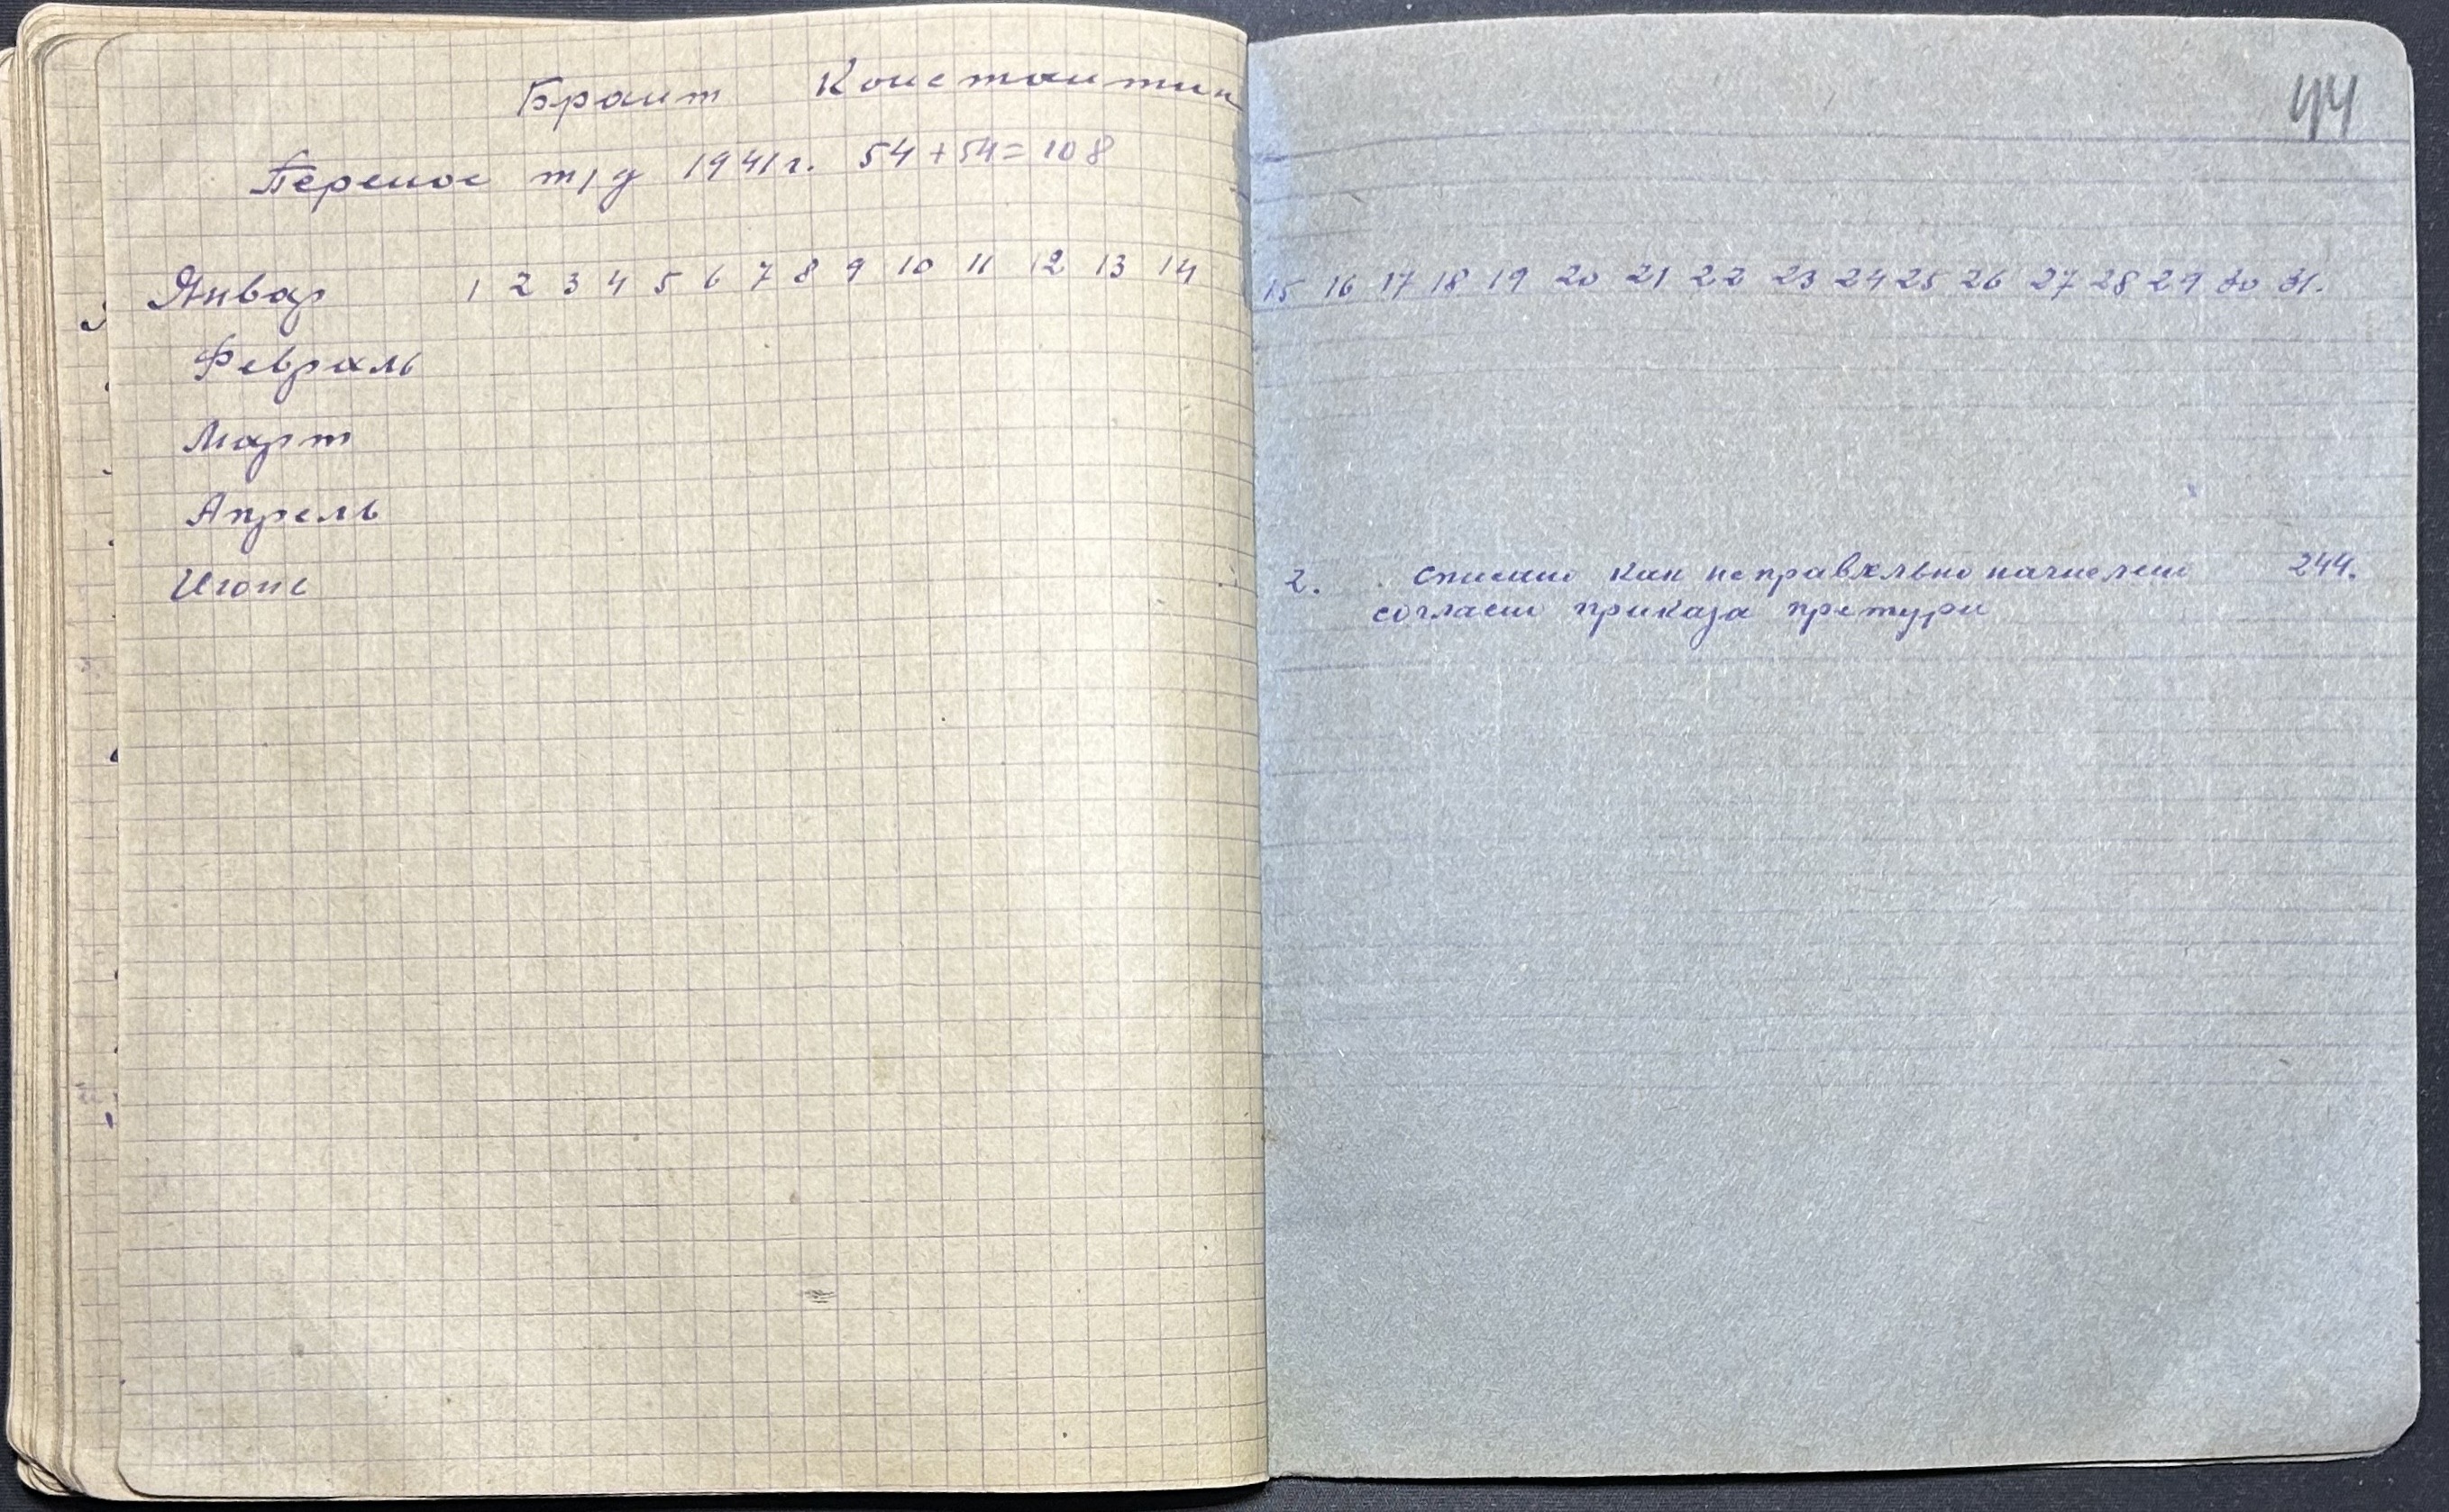 44
Брант Констонтин
Перенос т/д 1941г. 54+54=108
Январ 1 2 3 4 5 6 7 8 9 10 11 12 13 14 15 16 17 18 19 20 21 22 23 24 25 26 27 28 29 30 31.
Февраль
Март
Апрель
Июнь 2. списано как неправельно начислено 244.
согласно приказа претури